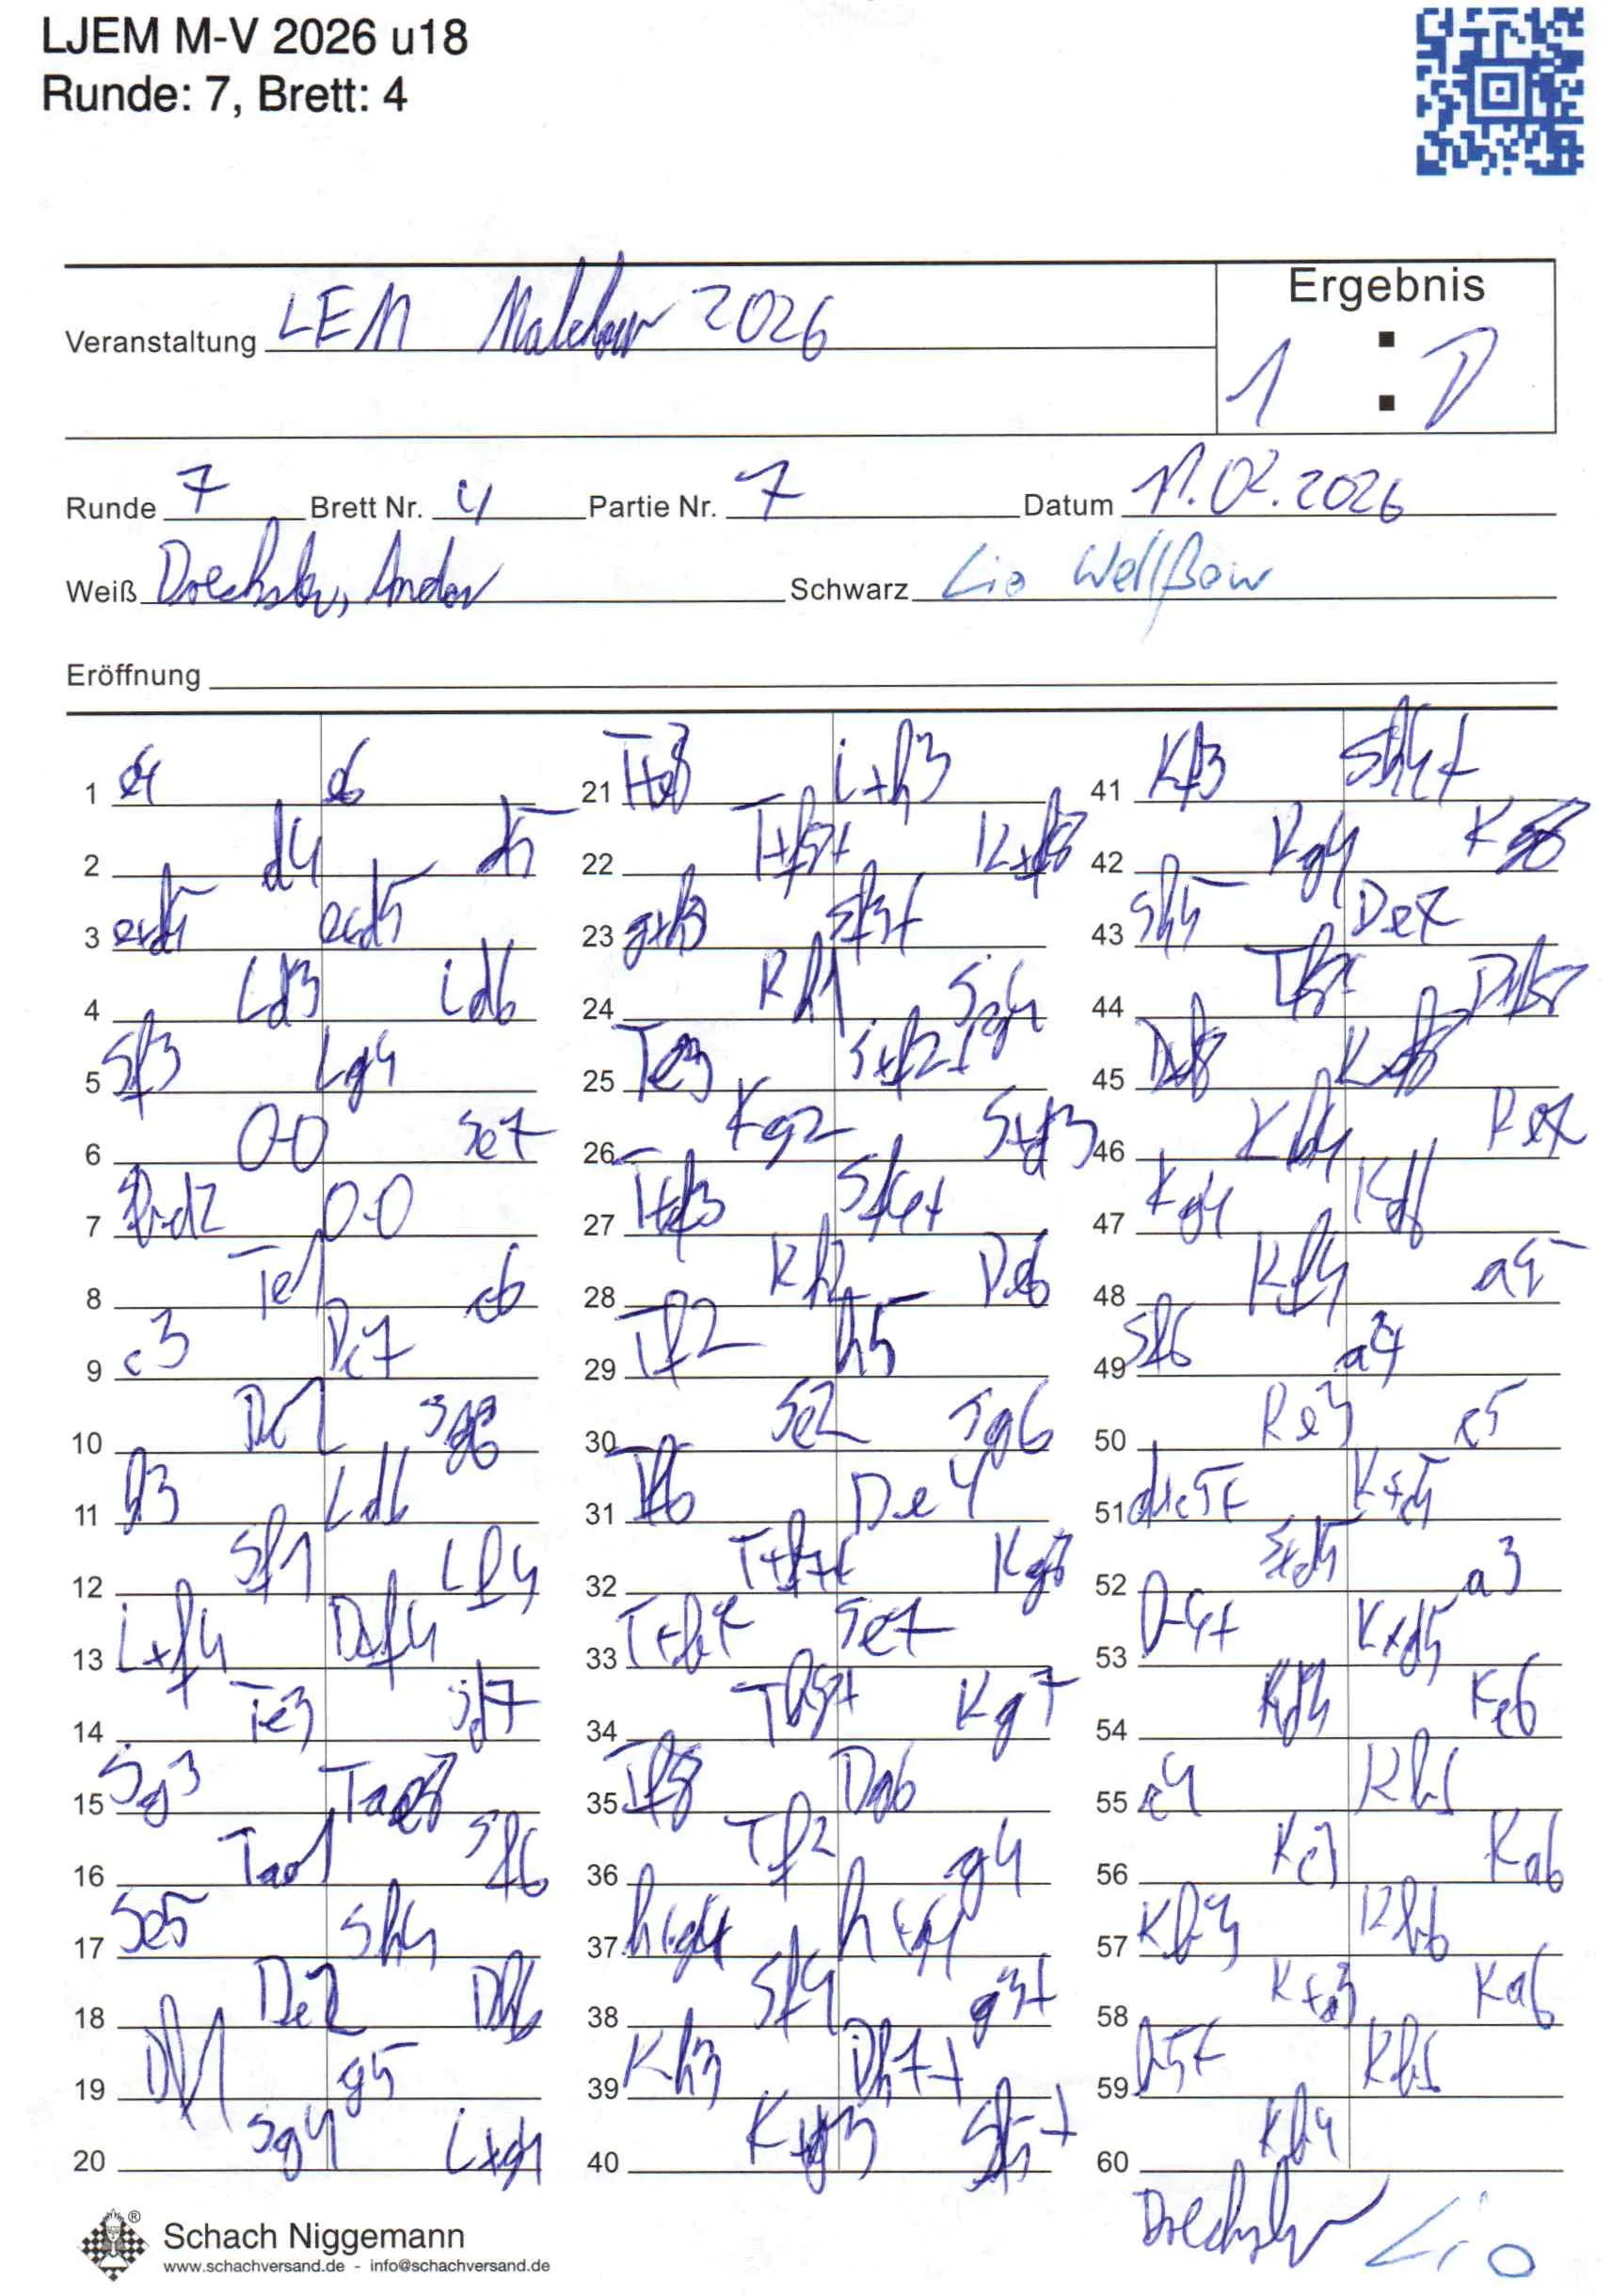 LJEM M-V 2026 u18
Runde: 7, Brett: 4
Veranstaltung LEM Malchow 2026
Ergebnis
1 : 0
Runde 7 Brett Nr. 4 Partie Nr. 7 Datum 11.02.2026
Weiß Drechsler, Andor Schwarz Lio Wellßow
Eröffnung
1 e4 e6
2 d4 d5
3 exd5 exd5
4 Ld3 Ld6
5 Sf3 Lg4
6 0-0 Se7
7 Sbd2 0-0
8 Te1 c6
9 c3 Dc7
10 Dc2 Sg6
11 h3 Ld6
12 Sf1 Lf4
13 Lxf4 Dxf4
14 Te3 Sd7
15 Sg3 Tae8
16 Tae1 Sf6
17 Se5 Sh4
18 De2 Dh6
19 Df1 g5
20 Sg4 Lxg4
21 Txe8 Lxh3
22 Txf8+ Kxf8
23 gxh3 Sf3+
24 Kh1 Sg4
25 Te3 Sxf2+
26 Kg2 Sxd3
27 Txd3 Sf4+
28 Kh2 De6
29 Tf2 h5
30 Se2 Sg6
31 Tf6 De4
32 Txf7+ Kg8
33 Txb7 Se7
34 Tb8+ Kg7
35 Tf8 Dg6
36 Tf2 g4
37 hxg4 hxg4
38 Sf4 g3+
39 Kh3 Dh7+
40 Kxg3 Sf5+
41 Kf3 Sh4+
42 Kg4 Kg8
43 Sh5 De7
44 Tf8+
45 Dxf8 Kxf8
46 Kxh4 Ke7
47 Kg4 Kd6
48 Kf4 a5
49 Sf6 a4
50 Ke3 c5
51 dxc5+ Kxc5
52 Sxd5 a3
53 b4+ Kxd5
54 Kd3 Kc6
55 c4 Kb6
56 Kc3 Ka6
57 Kb3 Kb6
58 Kxa3 Ka6
59 b5+ Kb6
60 Kb4
Drechsler Lio
Schach Niggemann
www.schachversand.de - info@schachversand.de